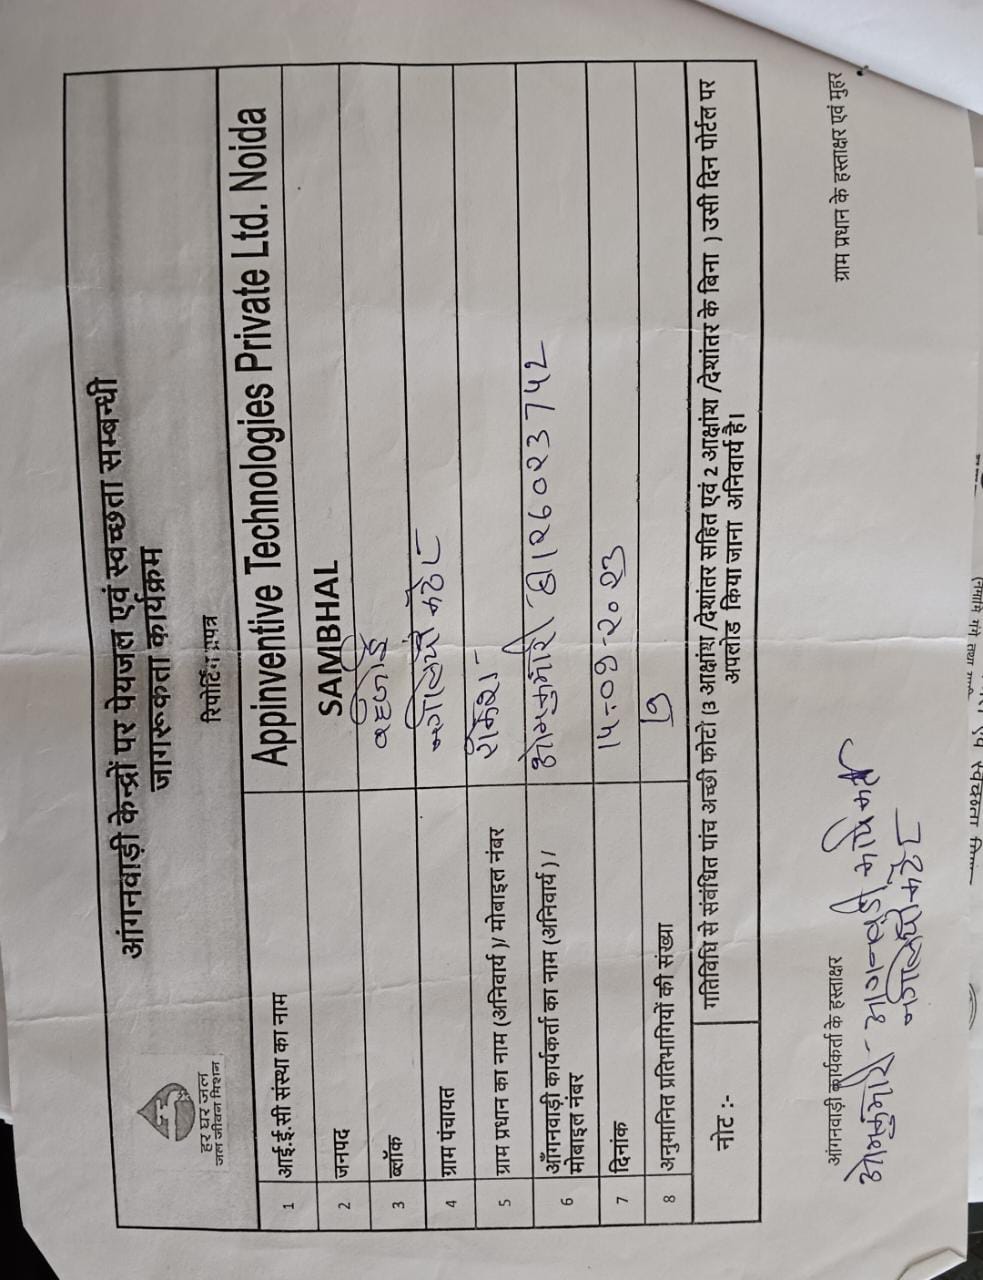 हर घर जल
जल जीवन मिशन
आंगनवाड़ी केन्द्रों पर पेयजल एवं स्वच्छता सम्बन्धी
जागरूकता कार्यक्रम
रिपोर्टिंग प्रपत्र
1 आई.ई.सी संस्था का नाम Appinventive Technologies Private Ltd. Noida
2 जनपद SAMBHAL
3 ब्लॉक
4 ग्राम पंचायत
5 ग्राम प्रधान का नाम (अनिवार्य )/ मोबाइल नंबर राकेश
6 आँगनवाड़ी कार्यकर्ता का नाम (अनिवार्य ) /
मोबाइल नंबर ओमकुमारी
7 दिनांक 15-09-2023
8 अनुमानित प्रतिभागियों की संख्या
नोट :- गतिविधि से संबंधित पांच अच्छी फोटो (3 आक्षांश /देशांतर सहित एवं 2 आक्षांश /देशांतर के बिना ) उसी दिन पोर्टल पर
अपलोड किया जाना अनिवार्य है।
आंगनवाड़ी कार्यकर्ता के हस्ताक्षर ग्राम प्रधान के हस्ताक्षर एवं मुहर
ओमकुमारी